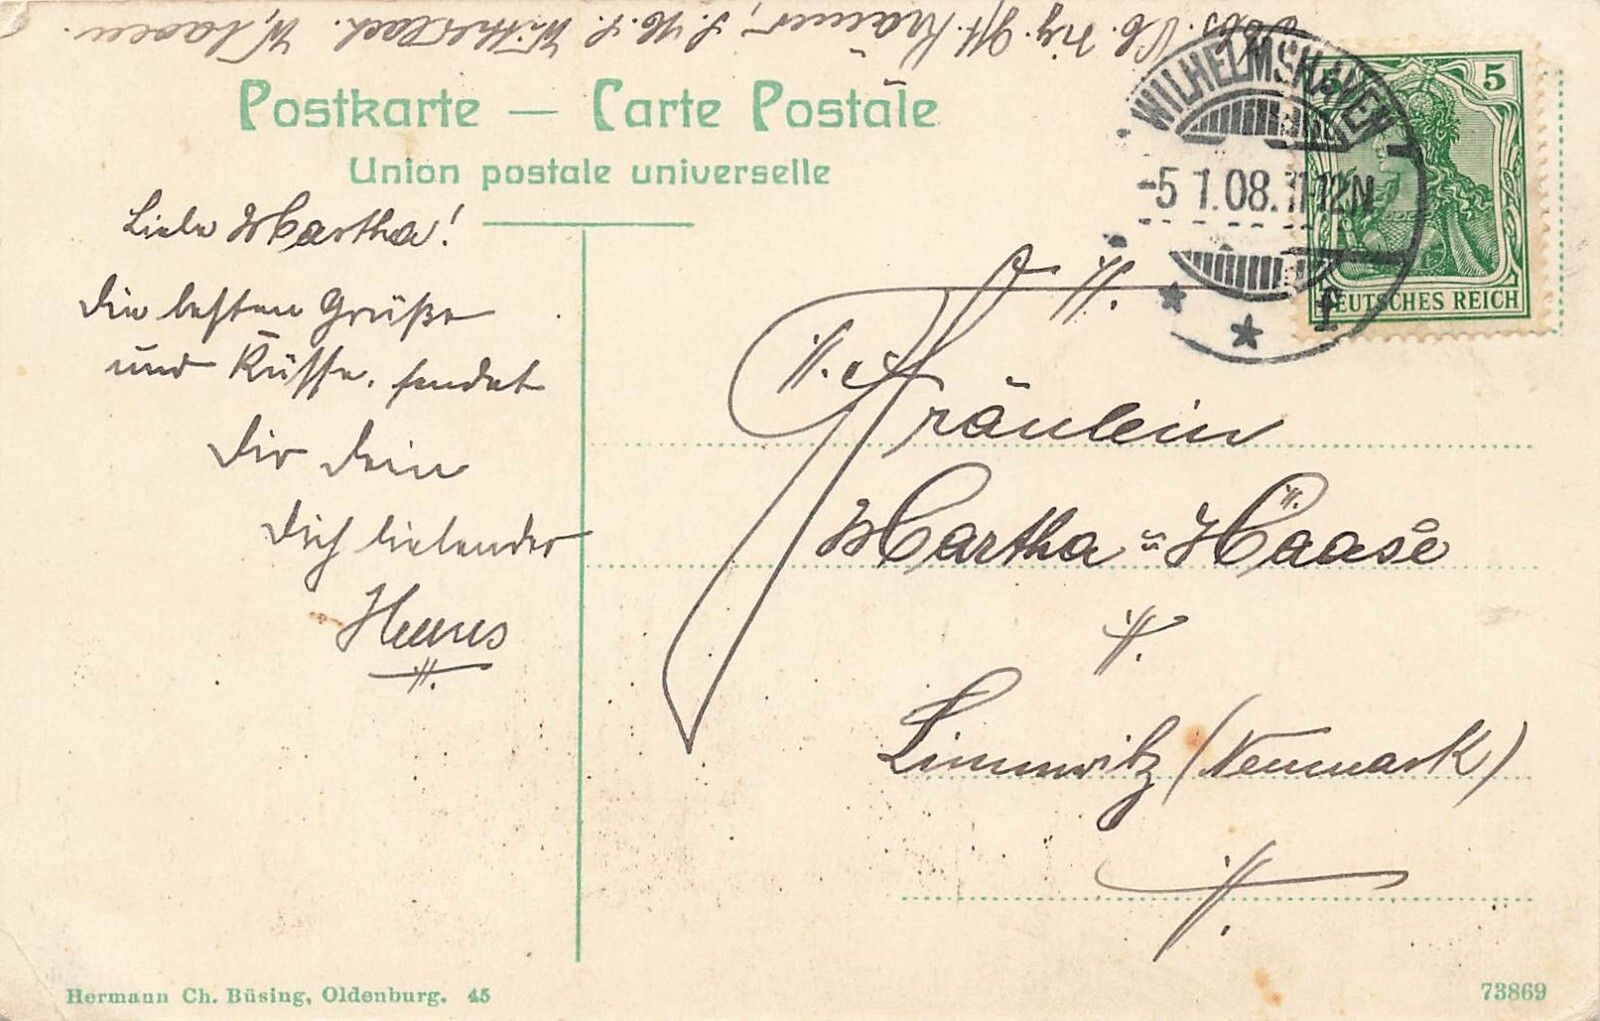 Postkarte — Carte Postale
Union postale universelle
WILHELMSHAVEN
-5 1.08. 11-12N
* * f
5
DEUTSCHES REICH
Liebe Martha!
Die besten Grüße
und Küsse, sendet
Dir Dein
Dich liebender
Hans
Fräulein
Martha Haase
(Neumark)
Hermann Ch. Büsing, Oldenburg. 45
73869